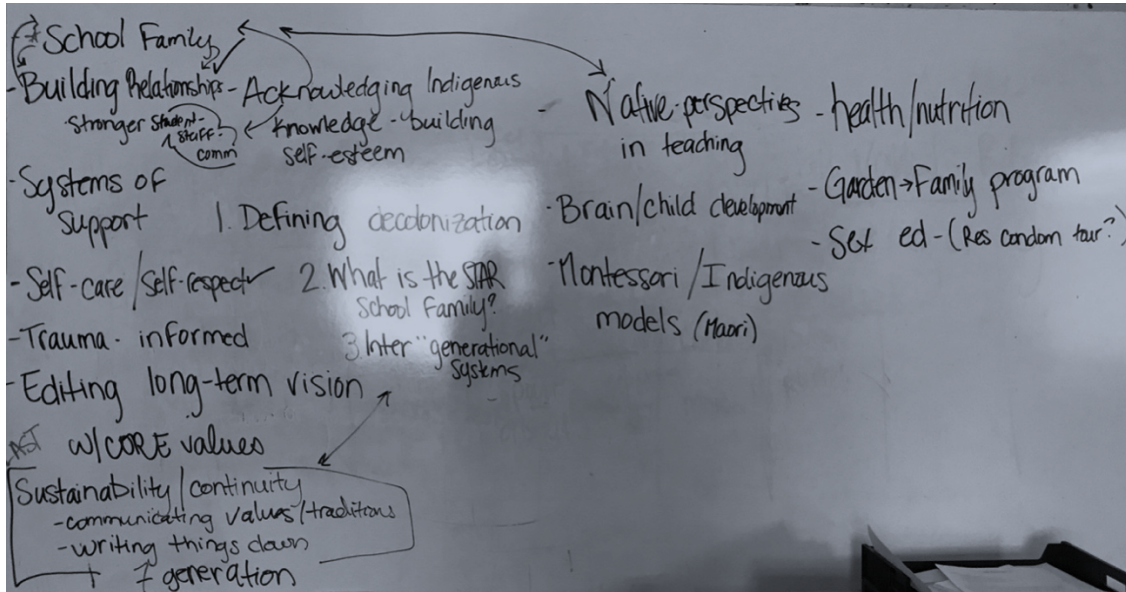 * School Family
- Building Relationships
Stronger student-
staff-
comm
- Acknowledging Indigenous
knowledge - building
self-esteem
- Systems of
support
- Self-care/Self-respect
- Trauma-informed
- Editing long-term vision
w/CORE values
Sustainability/continuity
- communicating values/traditions
- writing things down
7 generation
1. Defining decolonization
2. What is the STAR
School Family?
3. Inter "generational"
systems
- Native perspectives
in teaching
- Brain/child development
- Montessori/Indigenous
models (Maori)
- health/nutrition
- Garden→Family program
- Sex ed - (Res condom tour?)